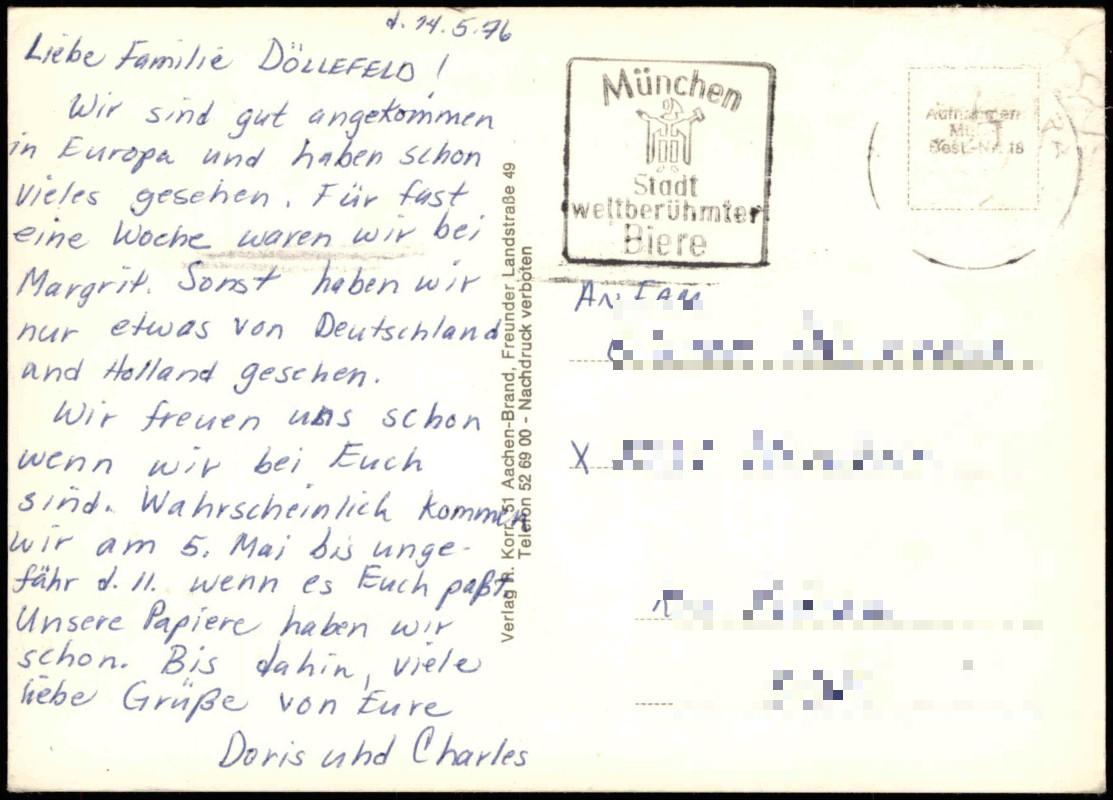 d. 14.5.76
Liebe Familie DÖLLEFELD!
Wir sind gut angekommen
in Europa und haben schon
vieles gesehen. Für fast
eine Woche waren wir bei
Margrit. Sonst haben wir
nur etwas von Deutschland
and Holland gesehen.
Wir freuen uns schon
wenn wir bei Euch
sind. Wahrscheinlich kommen
wir am 5. Mai bis unge-
fähr d. 11. wenn es Euch paßt.
Unsere Papiere haben wir
schon. Bis dahin, viele
liebe Grüße von Eure
Doris und Charles
Verlag H. Korr, 51 Aachen-Brand, Freunder Landstraße 49
Telefon 52 69 00 - Nachdruck verboten
München
Stadt
weltberühmter
Biere
Best.-Nr. 18
An Fam
X